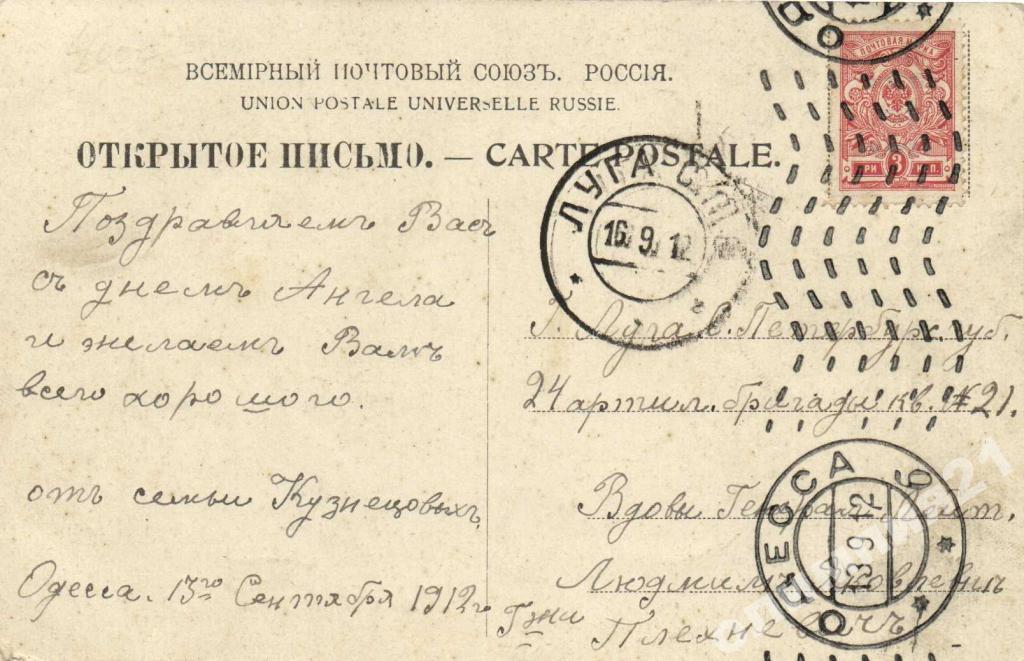 ВСЕМІРНЫЙ ПОЧТОВЫЙ СОЮЗЪ. РОССІЯ.
UNION POSTALE UNIVERSELLE RUSSIE.
ОТКРЫТОЕ ПИСЬМО. — CARTE POSTALE.
ПОЧТОВАЯ МАРКА
ТРИ 3 КОП.
ЛУГА С.П.
16.9.12
Поздравляемъ Васъ
съ днемъ Ангела
и желаемъ Вамъ
всего хорошого.
отъ семьи Кузнецовыхъ.
Одесса. 13го Сентября 1912г
Г. Луга С. Петербург. губ.
24 артил. бригады кв. № 21.
Вдовы Генерал. Лейт.
Гжи
Людмилъ Яковлевнъ
Плехневичъ
ОДЕССА 9
13 9 12